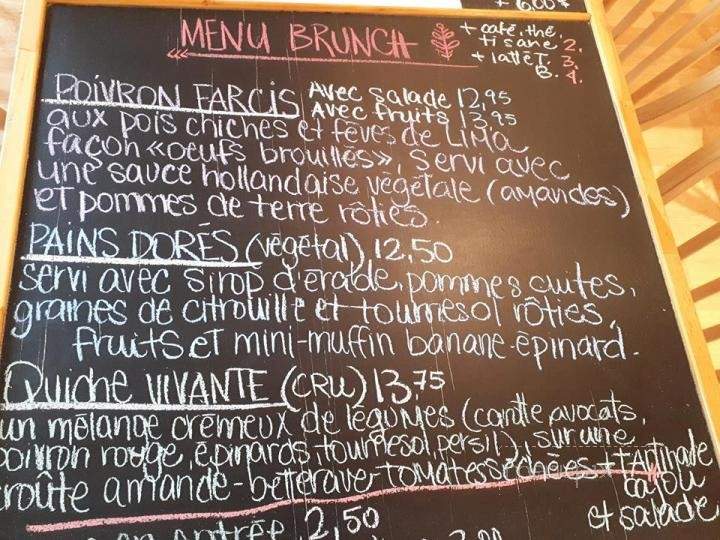 + 6,00$
MENU BRUNCH
+ café, thé,
tisane 2.
+ lattéT. 3.
B. 4.
POIVRON FARCIS Avec salade 12,95
Avec fruits 13,95
aux pois chiches et fèves de LIMA
façon «oeufs brouillés», servi avec
une sauce hollandaise végétale (amandes)
et pommes de terre rôties.
PAINS DORÉS (végétal) 12,50
servi avec sirop d'érable, pommes cuites,
graines de citrouille et tournesol rôties,
fruits et mini-muffin banane-épinard.
Quiche VIVANTE (CRU) 13,75
un mélange crémeux de légumes (carotte, avocats,
poivron rouge, épinards, tournesol, persil), sur une
croûte amande-betterave-tomates séchées + tartinade
cajou
et salade
en entrée 2,50